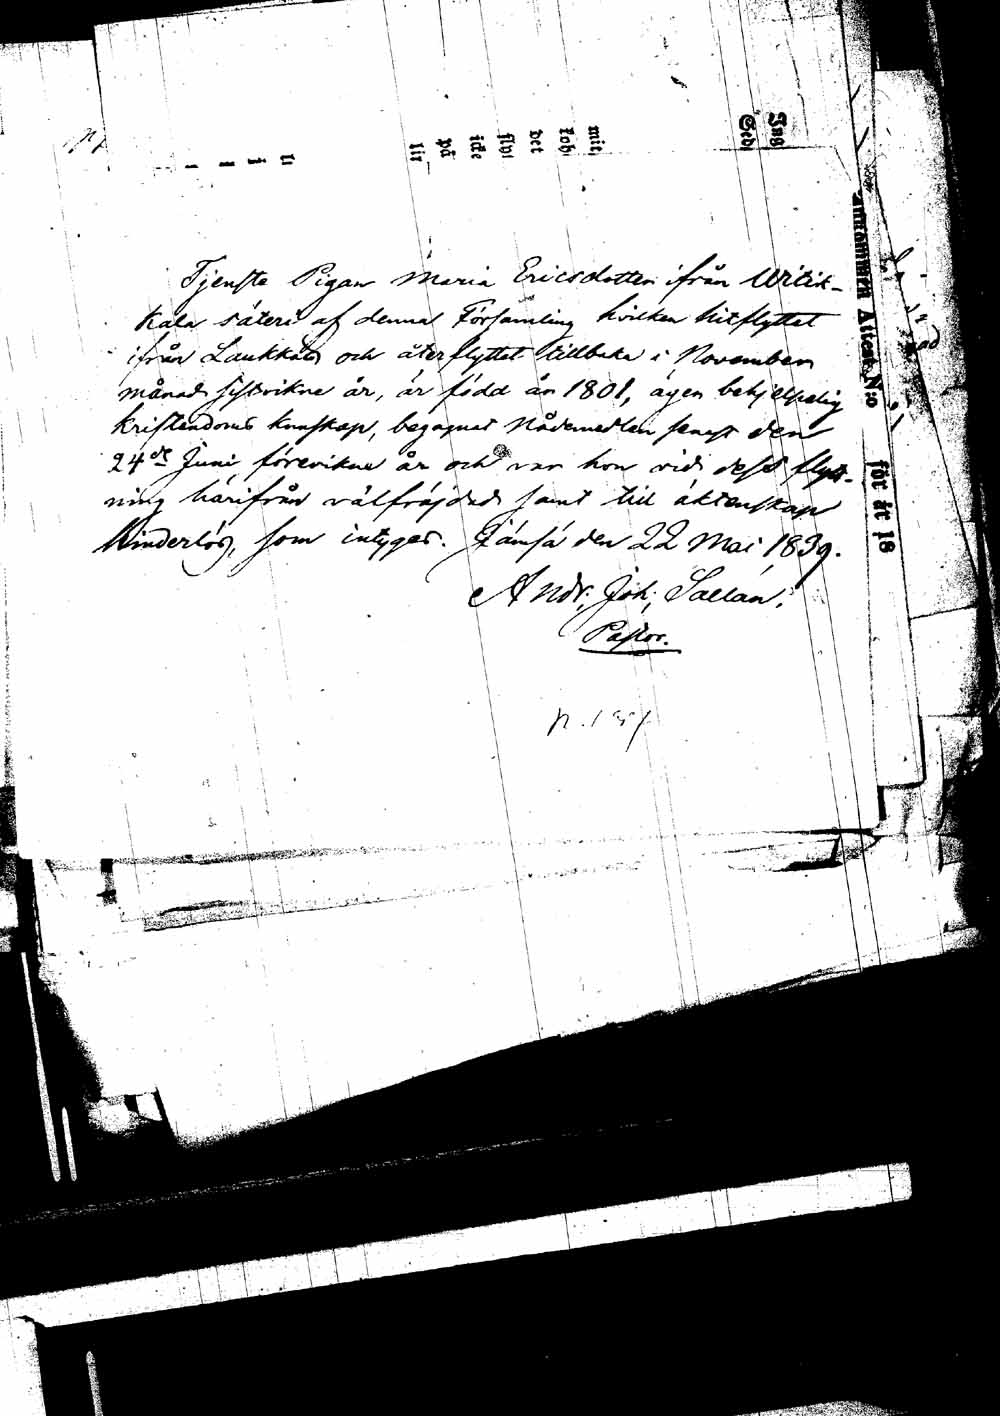 Tjenste Pigan Maria Ericsdotter ifrån Witik-
kala säteri af denna Församling hvilken hitflyttat
ifrån Laukkas och återflyttat tillbaka i November
månad sistvikne år, är född år 1801, äger behjelpelig
kristendoms kunskap, begagnat Nådemedlen senast den
24de Juni förevikne år och var hon vid dess flytt-
ning härifrån välfräjdad samt till äktenskap
hinderlös, som intygas. Jämsä den 22 Mai 1839.
Andr. Joh. Sallän.
Pastor.
N.
Attest N:o för år 18
mit
det
på